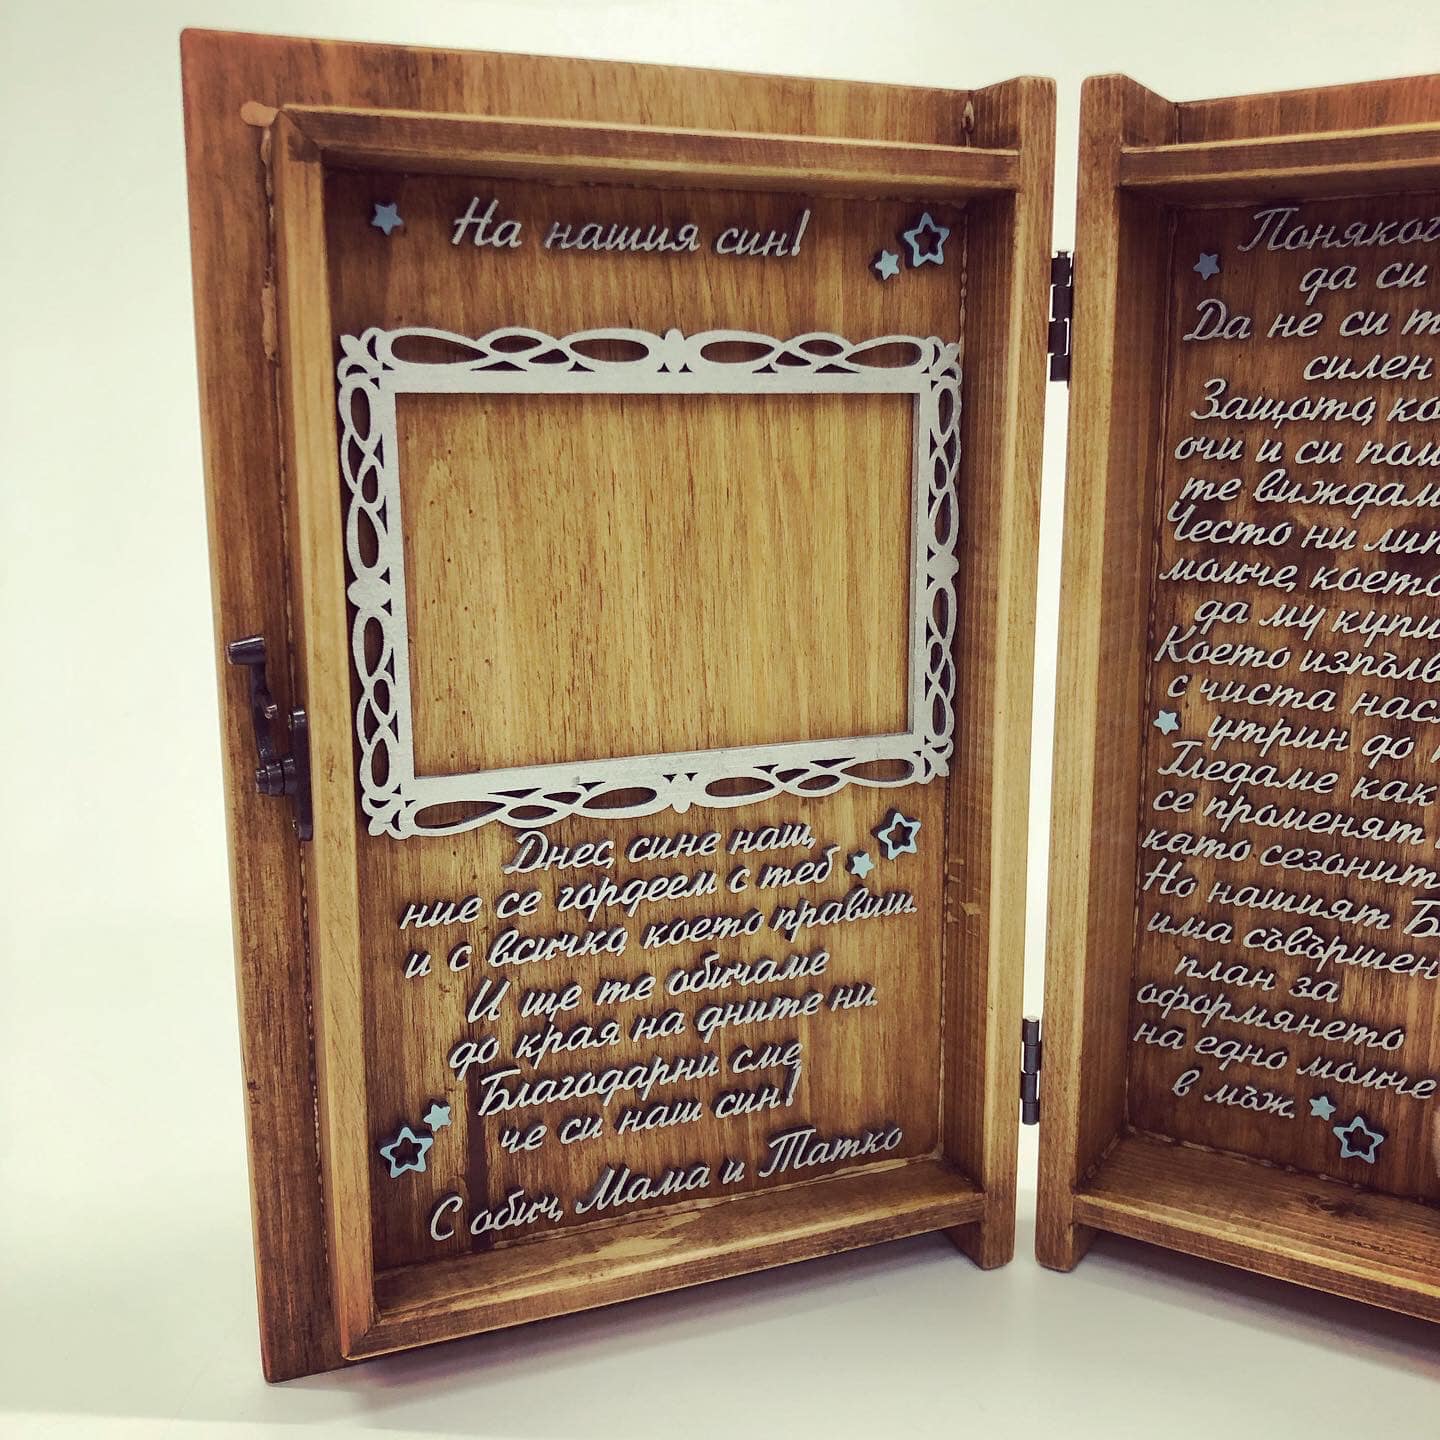 На нашия син!
Днес, сине наш,
ние се гордеем с теб
и с всичко, което правиш.
И ще те обичаме
до края на дните ни.
Благодарни сме,
че си наш син!
С обич, Мама и Татко
да си
Да не си
силен
Защото,
очи и си
те виждам
Често ни
момче, което
да му
Което
с чиста
утрин до
Гледаме как
се променят
като
Но нашият
има съвършен
план за
оформянето
на едно момче
в мъж.